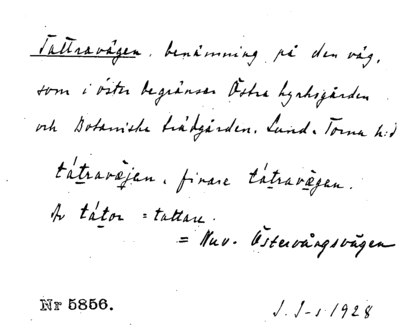 Tattravägen, benämning på den väg,
som i öster begränsar Östra kyrkogården
och Botaniska trädgården. Lund. Torna h:d
tátravæjen, finare tátravægen.
Av tátor = tattare.
= Nuv. Östervångsvägen
Nr 5856.
1928